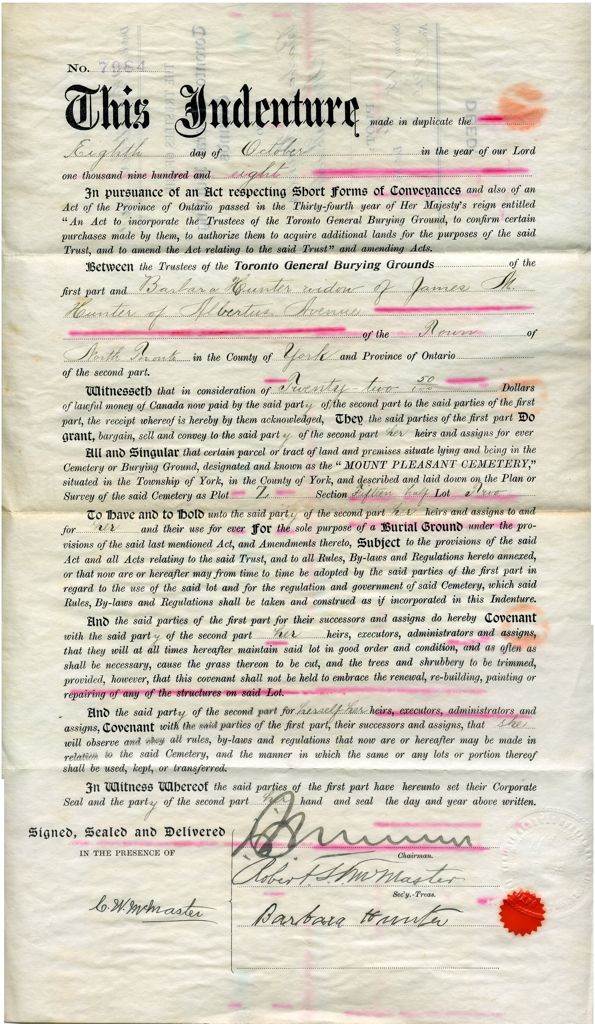 No. 7984
This Indenture made in duplicate the
Eighth day of October in the year of our Lord
one thousand nine hundred and eight
In pursuance of an Act respecting Short Forms of Conveyances and also of an
Act of the Province of Ontario passed in the Thirty-fourth year of Her Majesty's reign entitled
"An Act to incorporate the Trustees of the Toronto General Burying Ground, to confirm certain
purchases made by them, to authorize them to acquire additional lands for the purposes of the said
Trust, and to amend the Act relating to the said Trust" and amending Acts.
Between the Trustees of the Toronto General Burying Grounds of the
first part and Barbara Hunter widow of James M
Hunter of Albertus Avenue
of the Town of
North Toronto in the County of York and Province of Ontario
of the second part.
Witnesseth that in consideration of Twenty two 50/100 Dollars
of lawful money of Canada now paid by the said party of the second part to the said parties of the first
part, the receipt whereof is hereby by them acknowledged, They the said parties of the first part Do
grant, bargain, sell and convey to the said party of the second part her heirs and assigns for ever
All and Singular that certain parcel or tract of land and premises situate lying and being in the
Cemetery or Burying Ground, designated and known as the "MOUNT PLEASANT CEMETERY,"
situated in the Township of York, in the County of York, and described and laid down on the Plan or
Survey of the said Cemetery as Plot Z Section fifteen half Lot Two
To Have and to Hold unto the said party of the second part her heirs and assigns to and
for her and their use for ever For the sole purpose of a Burial Ground under the pro-
visions of the said last mentioned Act, and Amendments thereto, Subject to the provisions of the said
Act and all Acts relating to the said Trust, and to all Rules, By-laws and Regulations hereto annexed,
or that now are or hereafter may from time to time be adopted by the said parties of the first part in
regard to the use of the said lot and for the regulation and government of said Cemetery, which said
Rules, By-laws and Regulations shall be taken and construed as if incorporated in this Indenture.
And the said parties of the first part for their successors and assigns do hereby Covenant
with the said party of the second part her heirs, executors, administrators and assigns,
that they will at all times hereafter maintain said lot in good order and condition, and as often as
shall be necessary, cause the grass thereon to be cut, and the trees and shrubbery to be trimmed,
provided, however, that this covenant shall not be held to embrace the renewal, re-building, painting or
repairing of any of the structures on said Lot.
And the said party of the second part for herself her heirs, executors, administrators and
assigns, Covenant with the said parties of the first part, their successors and assigns, that she
will observe and obey all rules, by-laws and regulations that now are or hereafter may be made in
relation to the said Cemetery, and the manner in which the same or any lots or portion thereof
shall be used, kept, or transferred.
In Witness Whereof the said parties of the first part have hereunto set their Corporate
Seal and the party of the second part her hand and seal the day and year above written.
Signed, Sealed and Delivered
IN THE PRESENCE OF
Chairman.
Robert S. McMaster
Sec'y.-Treas.
C. W. McMaster
Barbara Hunter